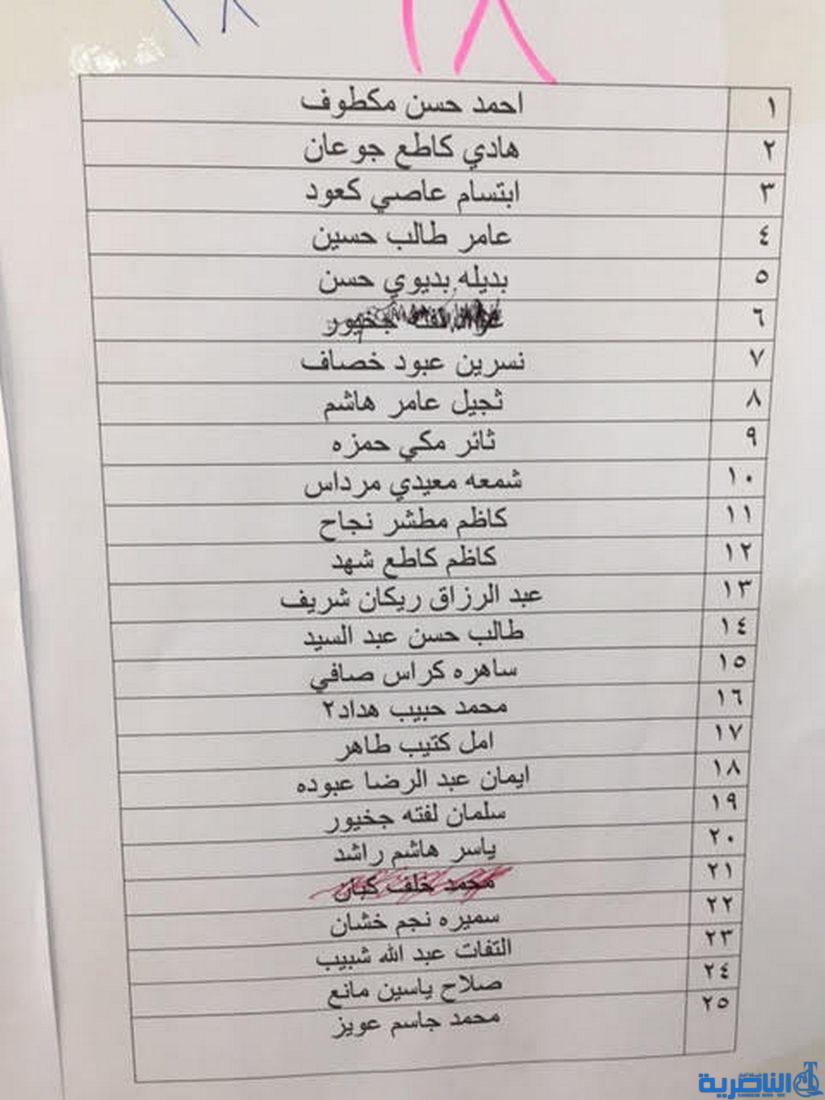 ١٨
١٨
١ احمد حسن مكطوف
٢ هادي كاطع جوعان
٣ ابتسام عاصي كعود
٤ عامر طالب حسين
٥ بديله بديوي حسن
٦ لفته جخيور
٧ نسرين عبود خصاف
٨ ثجيل عامر هاشم
٩ ثائر مكي حمزه
١٠ شمعه معيدي مرداس
١١ كاظم مطشر نجاح
١٢ كاظم كاطع شهد
١٣ عبد الرزاق ريكان شريف
١٤ طالب حسن عبد السيد
١٥ ساهره كراس صافي
١٦ محمد حبيب هداد٢
١٧ امل كتيب طاهر
١٨ ايمان عبد الرضا عبوده
١٩ سلمان لفته جخيور
٢٠ ياسر هاشم راشد
٢١ محمد خلف كبان
٢٢ سميره نجم خشان
٢٣ التفات عبد الله شبيب
٢٤ صلاح ياسين مانع
٢٥ محمد جاسم عويز
الناصرية